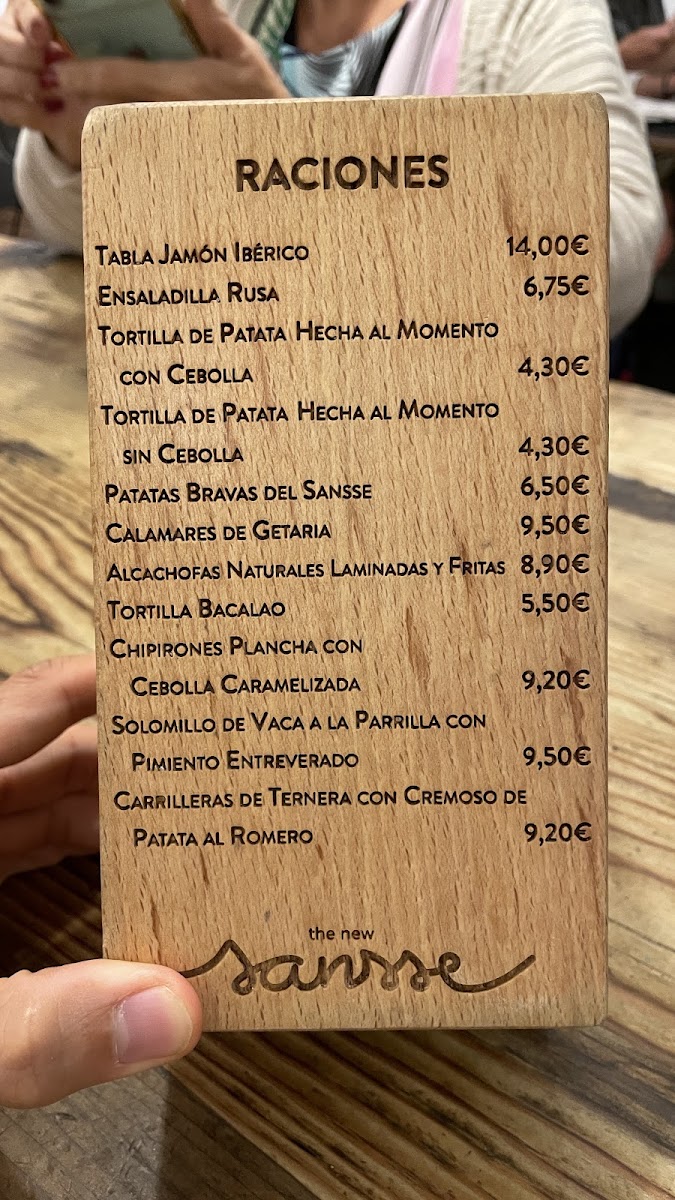 RACIONES
TABLA JAMÓN IBÉRICO 14,00€
ENSALADILLA RUSA 6,75€
TORTILLA DE PATATA HECHA AL MOMENTO
CON CEBOLLA 4,30€
TORTILLA DE PATATA HECHA AL MOMENTO
SIN CEBOLLA 4,30€
PATATAS BRAVAS DEL SANSSE 6,50€
CALAMARES DE GETARIA 9,50€
ALCACHOFAS NATURALES LAMINADAS Y FRITAS 8,90€
TORTILLA BACALAO 5,50€
CHIPIRONES PLANCHA CON
CEBOLLA CARAMELIZADA 9,20€
SOLOMILLO DE VACA A LA PARRILLA CON
PIMIENTO ENTREVERADO 9,50€
CARRILLERAS DE TERNERA CON CREMOSO DE
PATATA AL ROMERO 9,20€
the new
sansse